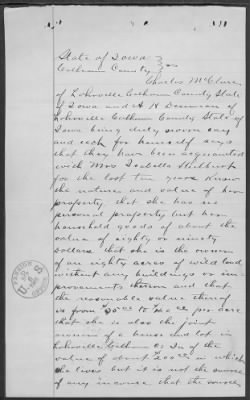 State of Iowa
Calhoun County } ss
Charles McClure
of Lohrville Calhoun County State
of Iowa and A H
Lohrville Calhoun County State of
Iowa being duly sworn say
and each for himself says
that they have been acquainted
with Mrs Isabella
for the last ten years know
the nature and value of her
property that she has no
personal property but her
household goods of about the
value of eighty or ninety
dollars that she is the owner
of an eighty acres of wild land
without any buildings or im-
provements thereon and that
the reasonable value thereof
is from per acre
that she is also the joint
owner of a house and lot in
Lohrville Calhoun Co Ia of the
value of about $200 00 in which
she lives but it is not the source
of any income that she
U S
PENSION